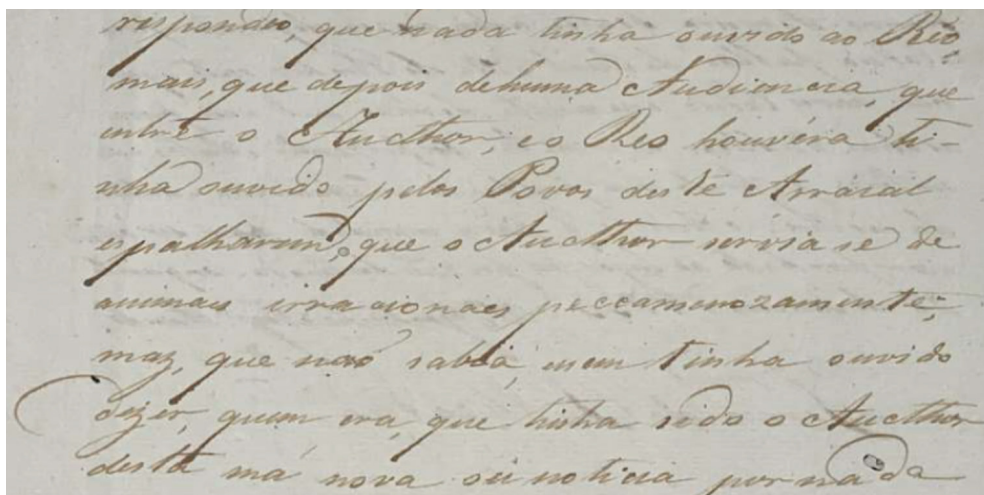 respondeo, que nada tinha ouvido ao Reo
mais, que depois dehuma Audiencia, que
entre o Aucthor, eo Reo houvéra ti-
nha ouvido pelos Povos deste Arraial
espalharem, que o Aucthor servia se de
animais irracionaes peccamenozamente;
maz, que naõ sabia, nem tinha ouvido
dizer, quem era, que tinha sido o Aucthor
desta má nova ou noticia por nada